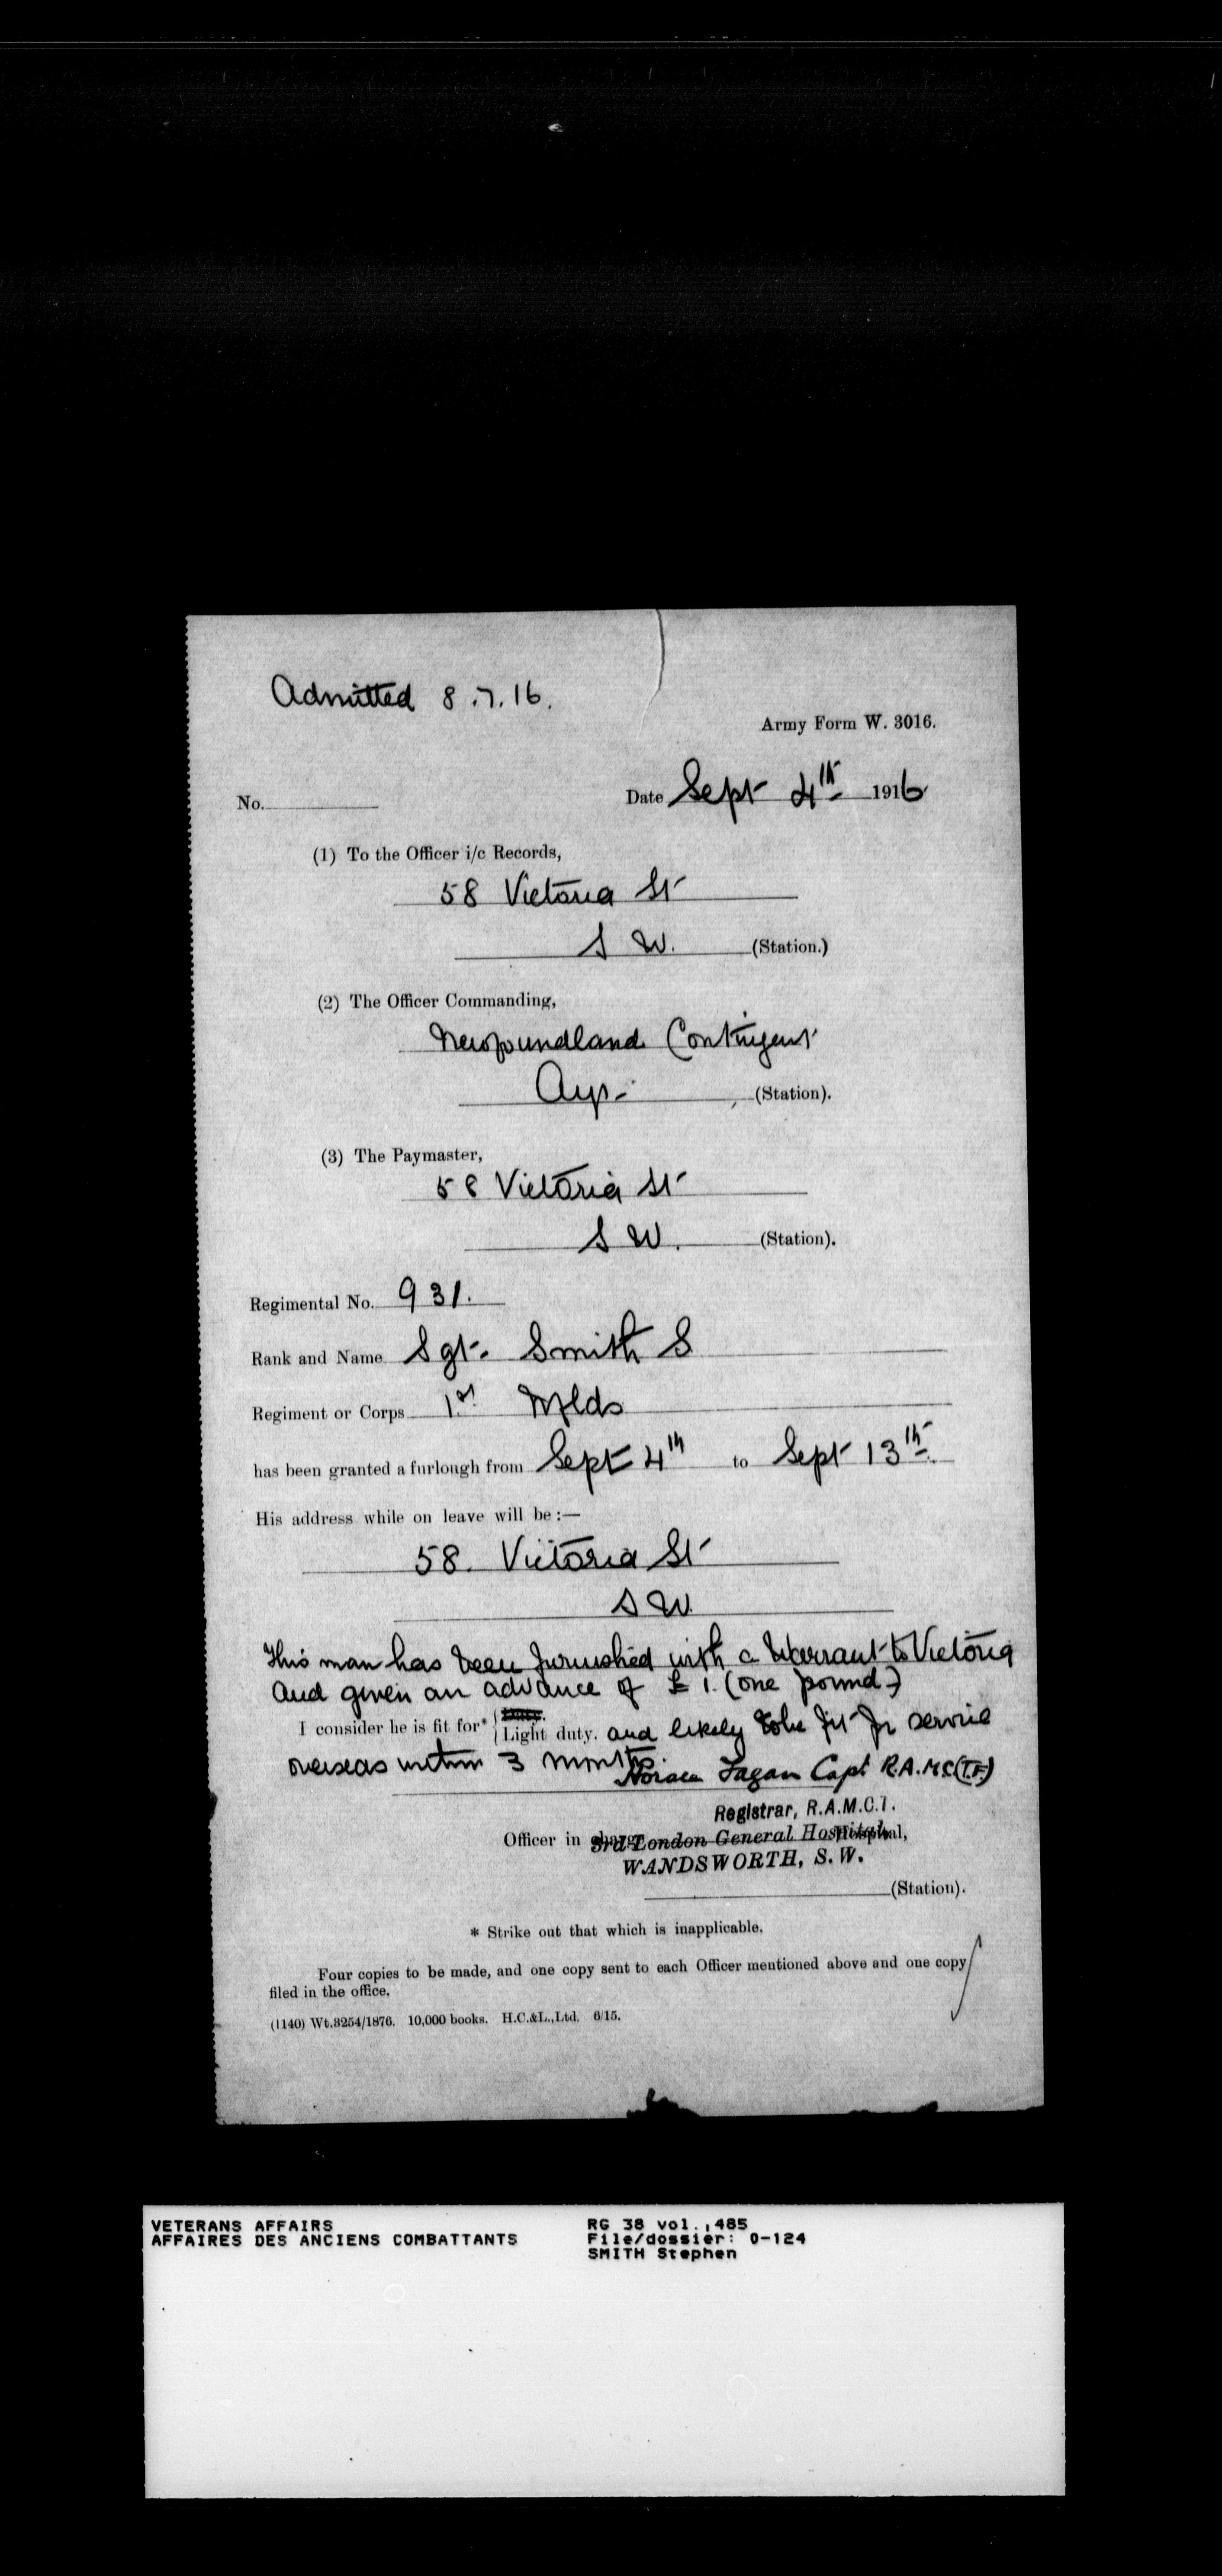 Admitted 8.7.16.
Army Form W. 3016.
No. Date Sept 4th 1916
(1) To the Officer i/c Records,
58 Victoria St
S W. (Station.)
(2) The Officer Commanding,
Newfoundland Contingent
Ayr. (Station).
(3) The Paymaster,
58 Victoria St
S W. (Station).
Regimental No. 931.
Rank and Name Sgt. Smith S
Regiment or Corps 1st Nflds
has been granted a furlough from Sept 4th to Sept 13th.
His address while on leave will be :—
58. Victoria St
S W.
This man has been furnished with a Warrant to Victoria
and given an advance of £1. (one pound)
I consider he is fit for* { Duty.
Light duty. and likely to be fit for service
overseas within 3 months.
Horace Capt R.A.M.C(T.F.)
Registrar, R.A.M.C.T.
Officer in charge 3rd London General Hospital Hospital,
WANDSWORTH, S.W.
(Station).
* Strike out that which is inapplicable.
Four copies to be made, and one copy sent to each Officer mentioned above and one copy
filed in the office.
(1140) Wt.3254/1876. 10,000 books. H.C.&L.,Ltd. 6/15.
VETERANS AFFAIRS RG 38 vol. 485
AFFAIRES DES ANCIENS COMBATTANTS File/dossier: 0-124
SMITH Stephen